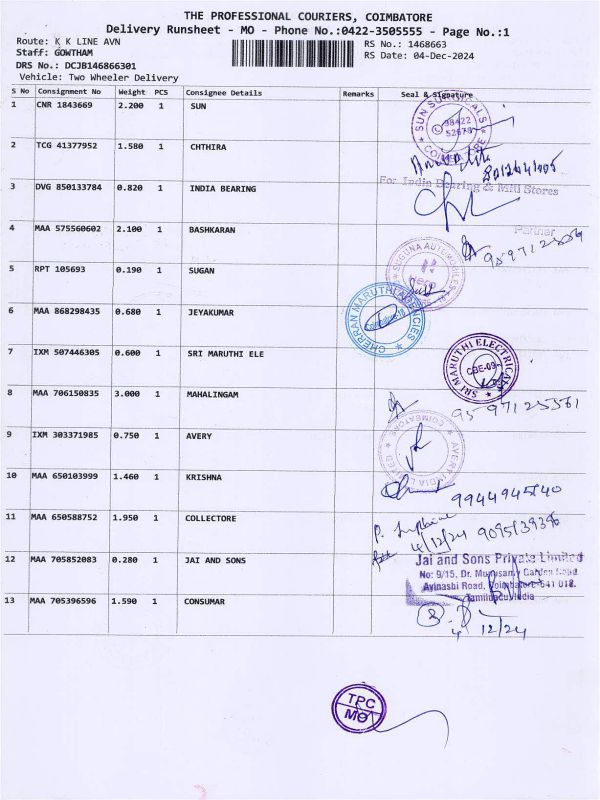 THE PROFESSIONAL COURIERS, COIMBATORE
Delivery Runsheet - MO - Phone No.:0422-3505555 - Page No.:1
Route: K K LINE AVN
RS No.: 1468663
Staff: GOWTHAM
RS Date: 04-Dec-2024
DRS No.: DCJB146866301
Vehicle: Two Wheeler Delivery
S No Consignment No Weight PCS Consignee Details Remarks Seal & Signature
1 CNR 1843669 2.200 1 SUN
SUN SURGICALS
98422
2 TCG 41377952 1.580 1 CHTHIRA
3 DVG 850133784 0.820 1 INDIA BEARING
For India Bearing & Mill Stores
Partner
4 MAA 575560602 2.100 1 BASHKARAN
5 RPT 105693 0.190 1 SUGAN
SUGUNA AUTOMOBILES
Hero
6 MAA 868298435 0.680 1 JEYAKUMAR
CHERRAN MARUTHI AGENCIES
Coimbatore-18
7 IXM 507446305 0.600 1 SRI MARUTHI ELE
SRI MARUTHI ELECTRICALS
CBE-09
8 MAA 706150835 3.000 1 MAHALINGAM
9 IXM 303371985 0.750 1 AVERY
AVERY INDIA LIMITED
COIMBATORE
10 MAA 650103999 1.460 1 KRISHNA
11 MAA 650588752 1.950 1 COLLECTORE
4/12/24 9095139396
12 MAA 705852083 0.280 1 JAI AND SONS
Jai and Sons Private Limited
No: 9/15, Dr. Murugasamy Garden Road
Avinashi Road, Coimbatore-641 018.
Tamilnadu, India
13 MAA 705396596 1.590 1 CONSUMAR
4 12/24
TPC
MO